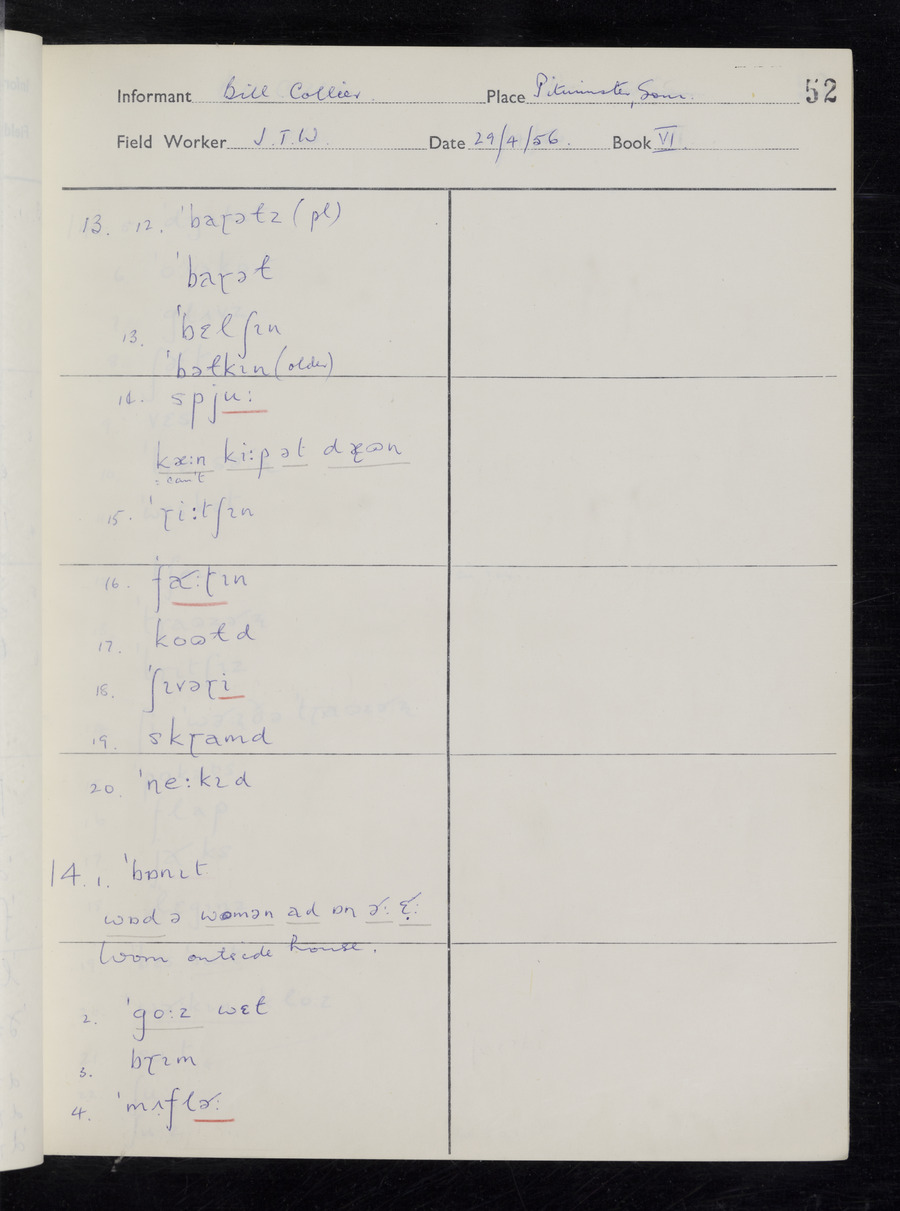 Informant Bill Collier Place Pitminster, Som. 52
Field Worker J.T.W. Date 29/4/56. Book VI
13. 12. ˈbaɽətz (pl)
ˈbaɽət
13. ˈbɛlʃɪn
ˈbəɫkin (older)
14. spju:
kæ:n ki:p ət dæɷn
= can't
15. ˈɽi:tʃɪn
16. ˈfɚ:ʈɪn
17. koɷɫd
18. ˈʃɪvəɽi
19. skɽamd
20. ˈne:kɪd
14. 1. ˈbɒnɪt
wɒd ə wɷmən ad ɒn ɚ: ɛ̣:
Worn outside house.
2. ˈgo:z wɛt
3. bɽɪm
4. ˈmʌflɚ: